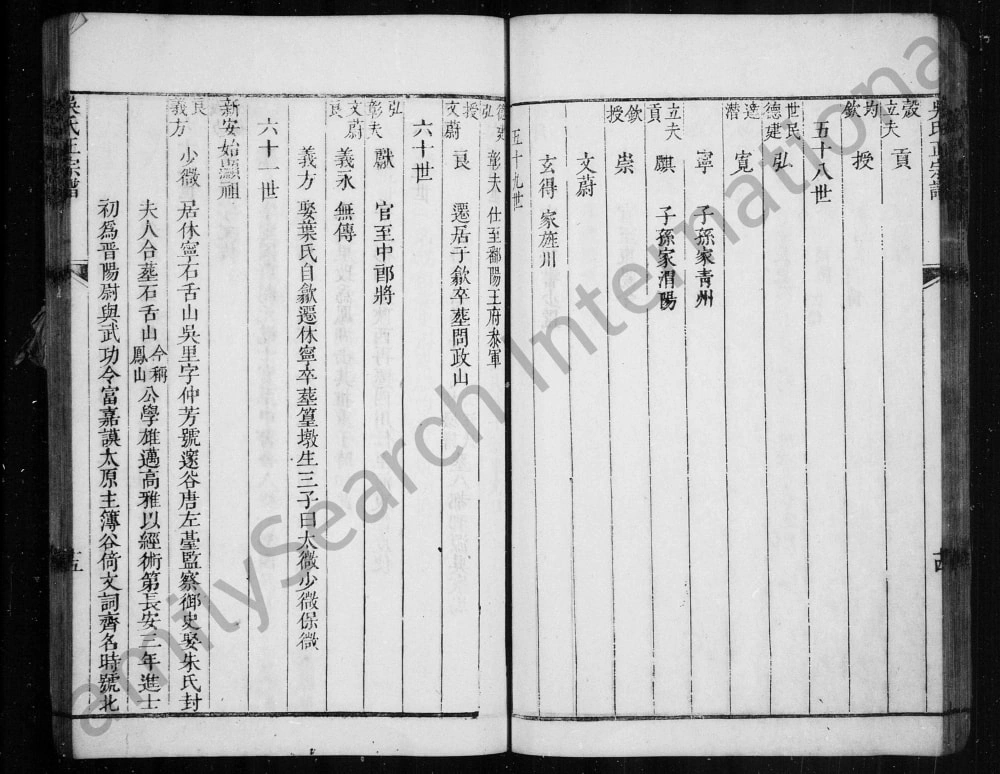 吳氏正宗譜
十四
轂 立夫 貢
均 欽 授
五十八世
世民 德建 弘
達 潛 寬
寧 子孫家青州
立夫 貢 麒 子孫家渭陽
欽 授 崇
文蔚
玄得 家旌川
五十九世
德建 弘 彰夫 仕至鄱陽王府叅軍
授 文蔚 良 遷居于歙卒葬問政山
六十世
弘 彰夫 獻 官至中郎將
文蔚 良 義永 無傳
義方 娶葉氏自歙遷休寧卒葬篁墩生三子曰太微少微保微
六十一世
新安始顯祖
良 義方 少微 居休寧石舌山吳里字仲芳號邃谷唐左臺監察御史娶朱氏封
夫人合葬石舌山今稱鳳山公學雄邁高雅以經術第長安三年進士
初為晋陽尉與武功令富嘉謨太原主簿谷倚文詞齊名時號北
吳氏正宗譜
十五
FamilySearch International